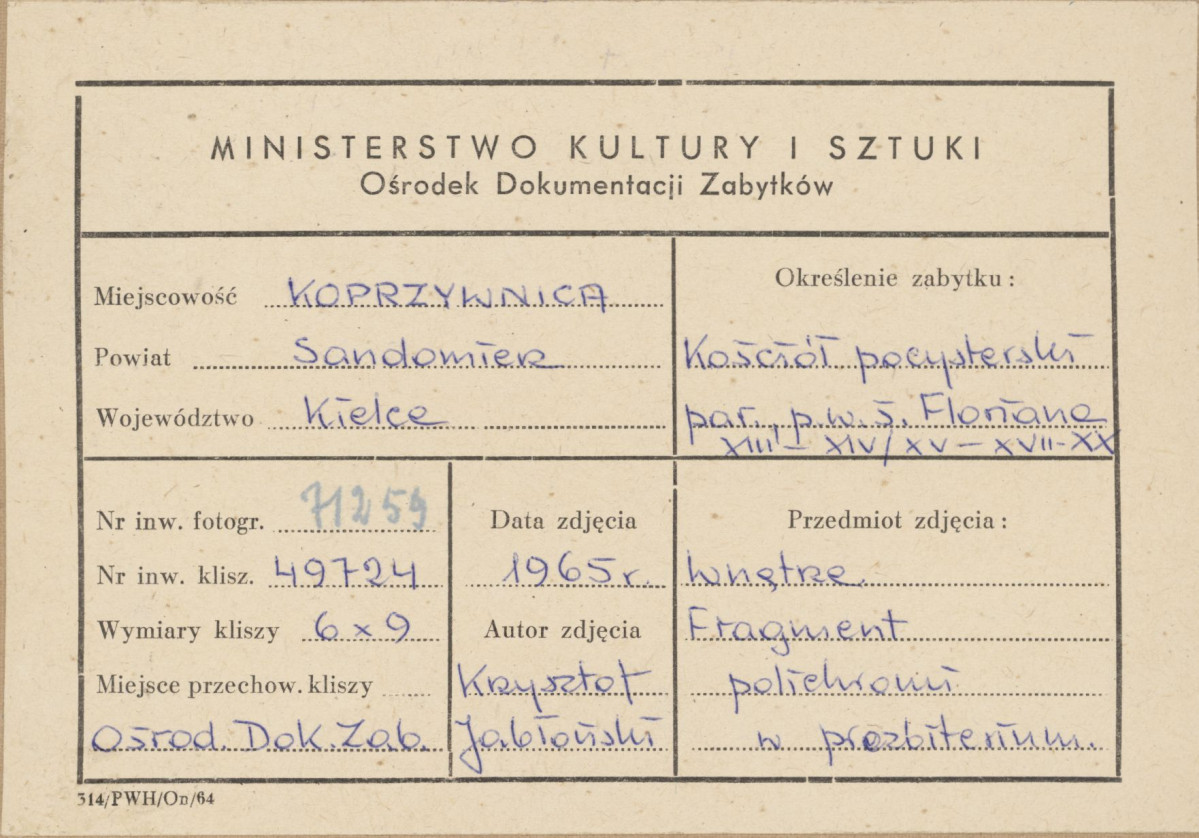 MINISTERSTWO KULTURY I SZTUKI
Ośrodek Dokumentacji Zabytków
Miejscowość KOPRZYWNICA
Powiat Sandomierz
Województwo Kielce
Określenie zabytku:
Kościół pocysterski
par., p.w. ś. Floriana
XIII – XIV/XV – XVII-XX
Nr inw. fotogr. 71259
Nr inw. klisz. 49724
Wymiary kliszy 6 x 9
Miejsce przechow. kliszy
Ośrod. Dok. Zab.
Data zdjęcia
1965 r.
Autor zdjęcia
Krzysztof
Jabłoński
Przedmiot zdjęcia:
Wnętrze
Fragment
polichromii
w prezbiterium.
314/PWH/On/64